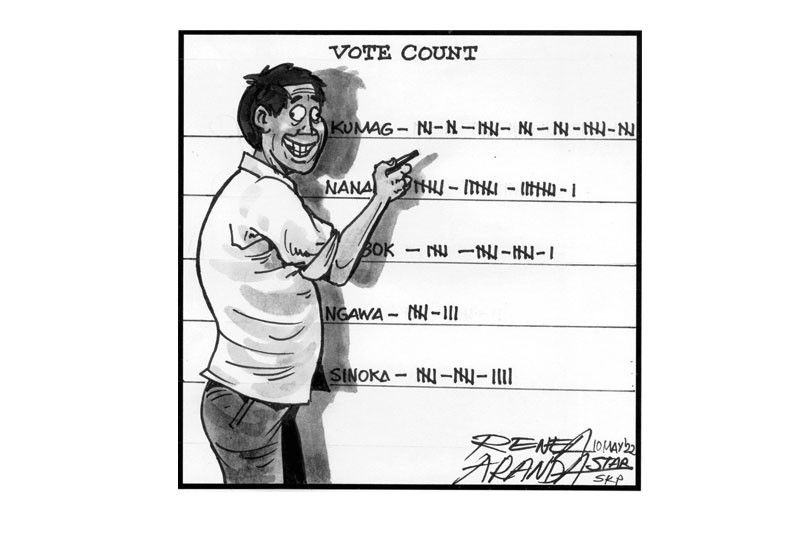 VOTE COUNT
KUMAG -
NANA
BOK -
NGAWA - III
SINOKA - IIII
RENE ARANDA
10 MAY '22
STAR
SKP